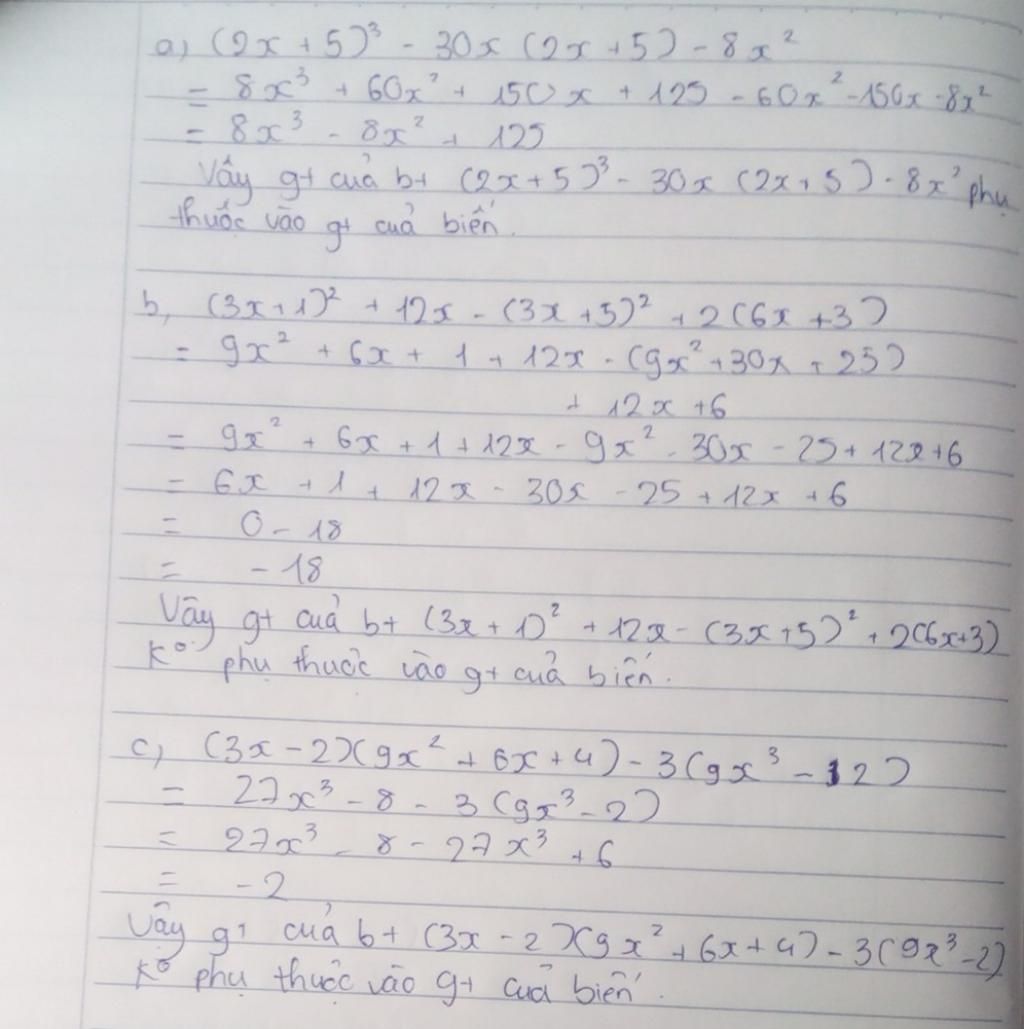 a) (2x + 5)³ - 30x (2x + 5) - 8x²
= 8x³ + 60x² + 150x + 125 - 60x² - 150x - 8x²
= 8x³ - 8x² + 125
Vậy gt của bt (2x + 5)³ - 30x (2x + 5) - 8x² phụ
thuộc vào gt của biến.
b, (3x + 1)² + 12x - (3x + 5)² + 2(6x + 3)
= 9x² + 6x + 1 + 12x - (9x² + 30x + 25)
+ 12x + 6
= 9x² + 6x + 1 + 12x - 9x² - 30x - 25 + 12x + 6
= 6x + 1 + 12x - 30x - 25 + 12x + 6
= 0 - 18
= - 18
Vậy gt của bt (3x + 1)² + 12x - (3x + 5)² + 2(6x + 3)
Kº phụ thuộc vào gt của biến.
c) (3x - 2)(9x² + 6x + 4) - 3(9x³ - 2)
= 27x³ - 8 - 3(9x³ - 2)
= 27x³ - 8 - 27x³ + 6
= - 2
Vậy gt của bt (3x - 2)(9x² + 6x + 4) - 3(9x³ - 2)
Kº phụ thuộc vào gt của biến.